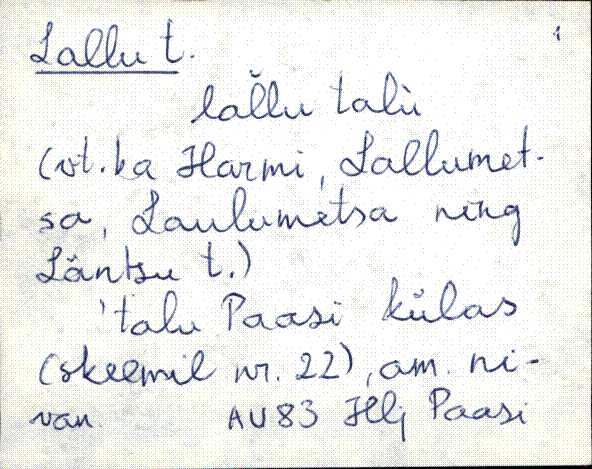 Lallu t. 1
lal̆lu talù
(vt. ka Harmi, Lallumet-
sa, Laulumetsa ning
Läntsu t.)
'talu Paasi külas
(skeemil nr. 22), am. ni-
van. AV83 Hlj Paasi